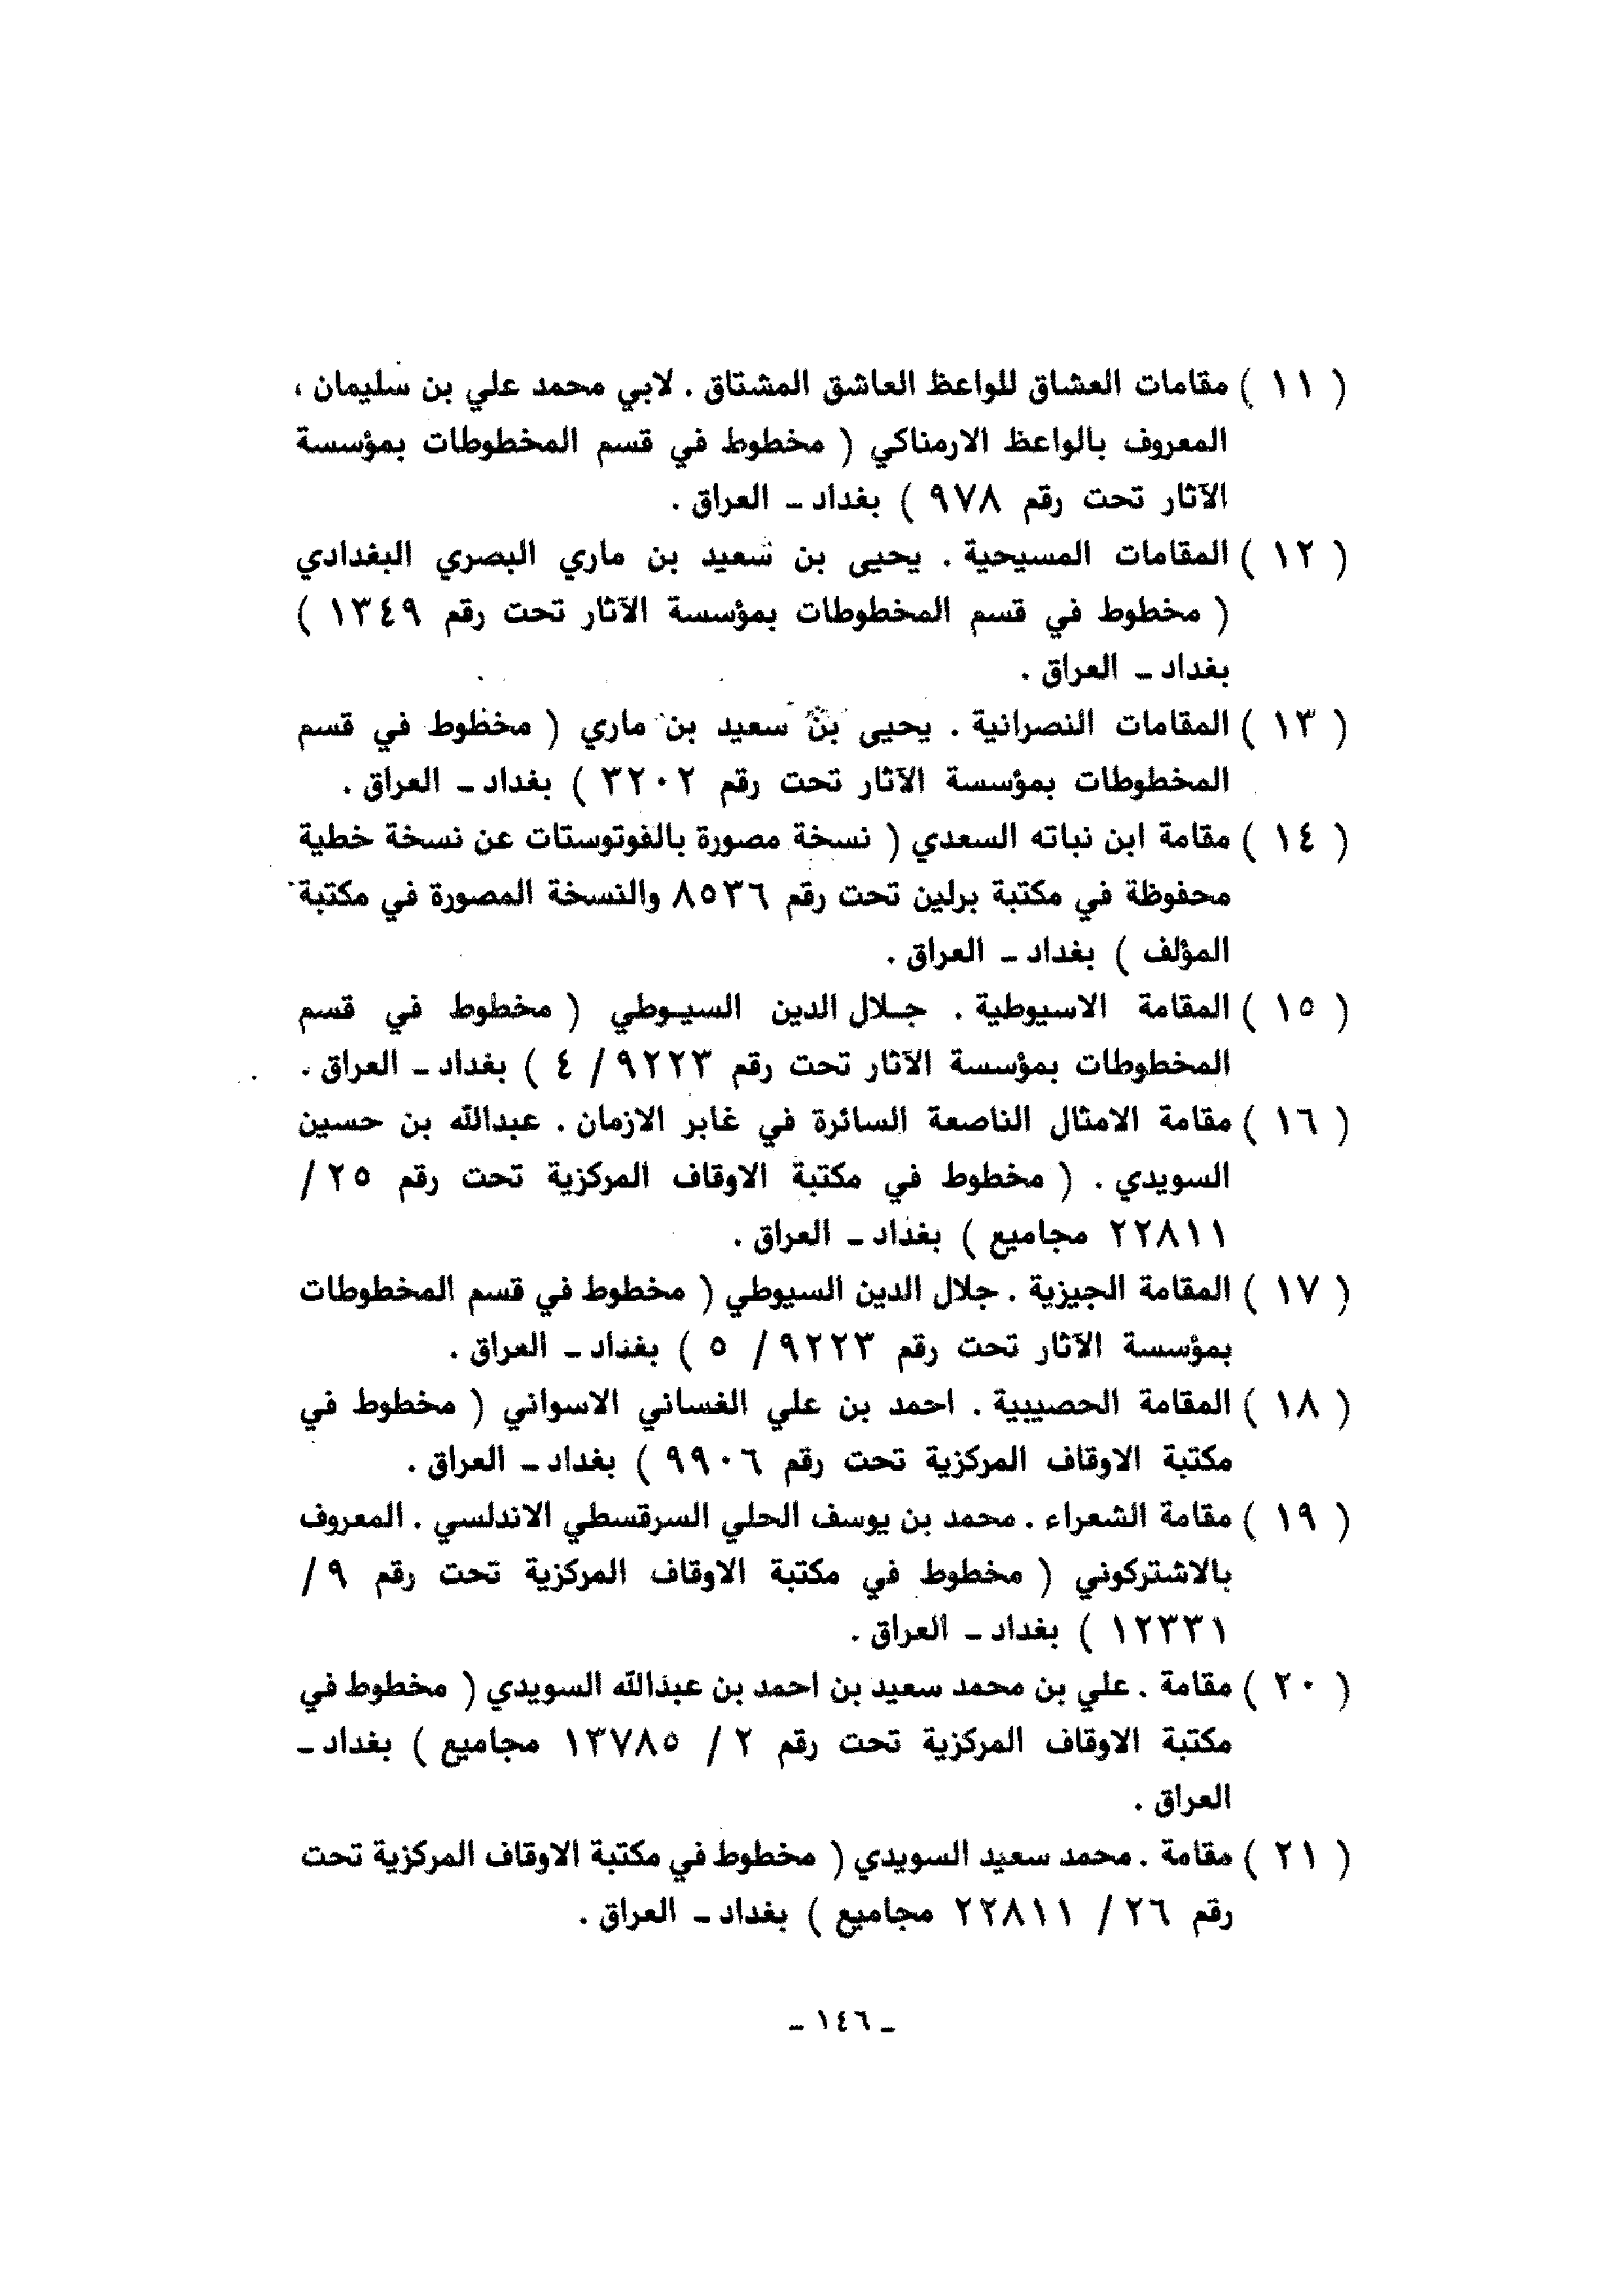 ( ١١ ) مقامات العشاق للواعظ العاشق المشتاق . لابي محمد علي بن سليمان ،
المعروف بالواعظ الارمناكي ( مخطوط في قسم المخطوطات بمؤسسة
الآثار تحت رقم ٩٧٨ ) بغداد ـ العراق .
( ١٢ ) المقامات المسيحية . يحيى بن سعيد بن ماري البصري البغدادي
( مخطوط في قسم المخطوطات بمؤسسة الآثار تحت رقم ١٣٤٩ )
بغداد ـ العراق .
( ١٣ ) المقامات النصرانية . يحيى بن سعيد بن ماري ( مخطوط في قسم
المخطوطات بمؤسسة الآثار تحت رقم ٣٢٠٢ ) بغداد ـ العراق .
( ١٤ ) مقامة ابن نباته السعدي ( نسخة مصورة بالفوتوستات عن نسخة خطية
محفوظة في مكتبة برلين تحت رقم ٨٥٣٦ والنسخة المصورة في مكتبة
المؤلف ) بغداد ـ العراق .
( ١٥ ) المقامة الاسيوطية . جـلال الدين السيـوطي ( مخطوط في قسم
المخطوطات بمؤسسة الآثار تحت رقم ٩٢٢٣/ ٤ ) بغداد ـ العراق .
( ١٦ ) مقامة الامثال الناصعة السائرة في غابر الازمان . عبدالله بن حسين
السويدي . ( مخطوط في مكتبة الاوقاف المركزية تحت رقم ٢٥/
٢٢٨١١ مجاميع ) بغداد ـ العراق .
( ١٧ ) المقامة الجيزية . جلال الدين السيوطي ( مخطوط في قسم المخطوطات
بمؤسسة الآثار تحت رقم ٩٢٢٣/ ٥ ) بغداد ـ العراق .
( ١٨ ) المقامة الحصيبية . احمد بن علي الغساني الاسواني ( مخطوط في
مكتبة الاوقاف المركزية تحت رقم ٩٩٠٦ ) بغداد ـ العراق .
( ١٩ ) مقامة الشعراء . محمد بن يوسف الحلي السرقسطي الاندلسي . المعروف
بالاشتركوني ( مخطوط في مكتبة الاوقاف المركزية تحت رقم ٩/
١٢٣٣١ ) بغداد ـ العراق .
( ٢٠ ) مقامة . علي بن محمد سعيد بن احمد بن عبدالله السويدي ( مخطوط في
مكتبة الاوقاف المركزية تحت رقم ٢ / ١٣٧٨٥ مجاميع ) بغداد ـ
العراق .
( ٢١ ) مقامة . محمد سعيد السويدي ( مخطوط في مكتبة الاوقاف المركزية تحت
رقم ٢٦/ ٢٢٨١١ مجاميع ) بغداد ـ العراق .
ـ ١٤٦ ـ